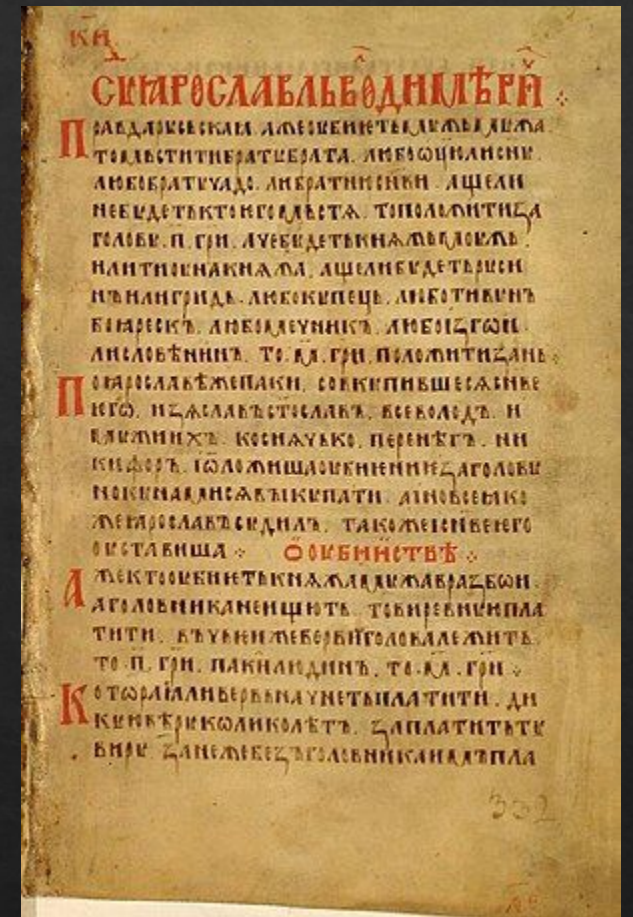 кн҃
СУДЪ ЯРОСЛАВЛЬ ВОЛОДИМѢРИ
Правда роусьскаꙗ. аже оубиеть моужь моужа
то мьстити братоу брата. любо ѡцю ли сноу
любо братоу чадо. ли братню сн҃ви. аще ли
не боудеть кто иго мьстѧ. то положити за
головоу. п҃. гри. аче боудеть кнѧжь моужь
или тиоуна кнѧжа. аще ли боудеть роуси
нъ или гридь. любо коупець. любо тивоунъ
боꙗрескъ. любо мечникъ. любо изгои
ли словѣнинъ. то. м҃. гри. положити за нь
По ꙗрославѣ же паки. совкоупившесѧ сн҃ве
иго. изѧславъ ст҃ославъ. всеволодъ. и
моужи ихъ. коснѧчько. перенѣгъ. ни
кифоръ. і ѿложиша оубиение за головоу
но коунами сѧ выкоупати. а іно все ꙗко
же ꙗрославъ соудилъ. тако же и сн҃ве иго
оуставиша ѿ оубииствѣ
Аже кто оубиеть кнѧжа моужа в разбои
а головника не ищють. то вирьвноую пла
тити. въ чьеи же верви голова лежить
то. п҃. гри. паки людинъ. то. м҃. гри
Которая ли вервь начнеть платити. ди
коую вѣроу колико лѣтъ. заплатить тоу
вироу зане же безъ головника имъ пла
332